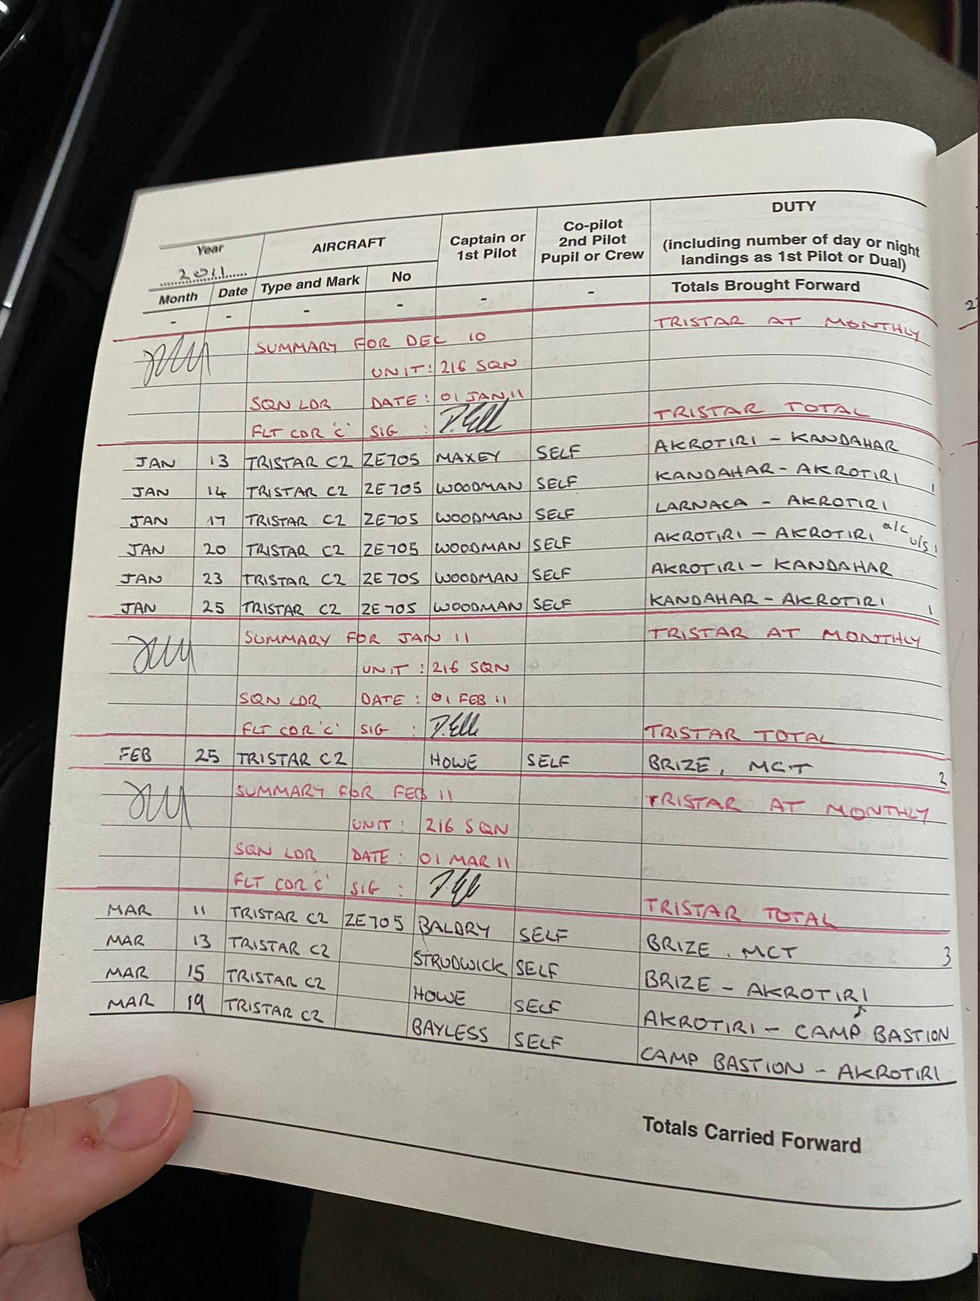 Year
2011
AIRCRAFT
Captain or
1st Pilot
Co-pilot
2nd Pilot
Pupil or Crew
DUTY
(including number of day or night
landings as 1st Pilot or Dual)
Month Date Type and Mark No
Totals Brought Forward
- - - - - -
SUMMARY FOR DEC 10 TRISTAR AT MONTHLY
UNIT: 216 SQN
SQN LDR DATE: 01 JAN 11
FLT CDR 'C' SIG : TRISTAR TOTAL
JAN 13 TRISTAR C2 ZE705 MAXEY SELF AKROTIRI - KANDAHAR
JAN 14 TRISTAR C2 ZE705 WOODMAN SELF KANDAHAR - AKROTIRI 1
JAN 17 TRISTAR C2 ZE705 WOODMAN SELF LARNACA - AKROTIRI
JAN 20 TRISTAR C2 ZE705 WOODMAN SELF AKROTIRI - AKROTIRI a/c u/s 1
JAN 23 TRISTAR C2 ZE705 WOODMAN SELF AKROTIRI - KANDAHAR
JAN 25 TRISTAR C2 ZE705 WOODMAN SELF KANDAHAR - AKROTIRI 1
SUMMARY FOR JAN 11 TRISTAR AT MONTHLY
UNIT : 216 SQN
SQN LDR DATE : 01 FEB 11
FLT CDR 'C' SIG : TRISTAR TOTAL
FEB 25 TRISTAR C2 HOWE SELF BRIZE, MCT 2
SUMMARY FOR FEB 11 TRISTAR AT MONTHLY
UNIT : 216 SQN
SQN LDR DATE : 01 MAR 11
FLT CDR 'C' SIG : TRISTAR TOTAL
MAR 11 TRISTAR C2 ZE705 BALDRY SELF BRIZE. MCT 3
MAR 13 TRISTAR C2 STRUDWICK SELF BRIZE - AKROTIRI
MAR 15 TRISTAR C2 HOWE SELF AKROTIRI - CAMP BASTION
MAR 19 TRISTAR C2 BAYLESS SELF CAMP BASTION - AKROTIRI
Totals Carried Forward